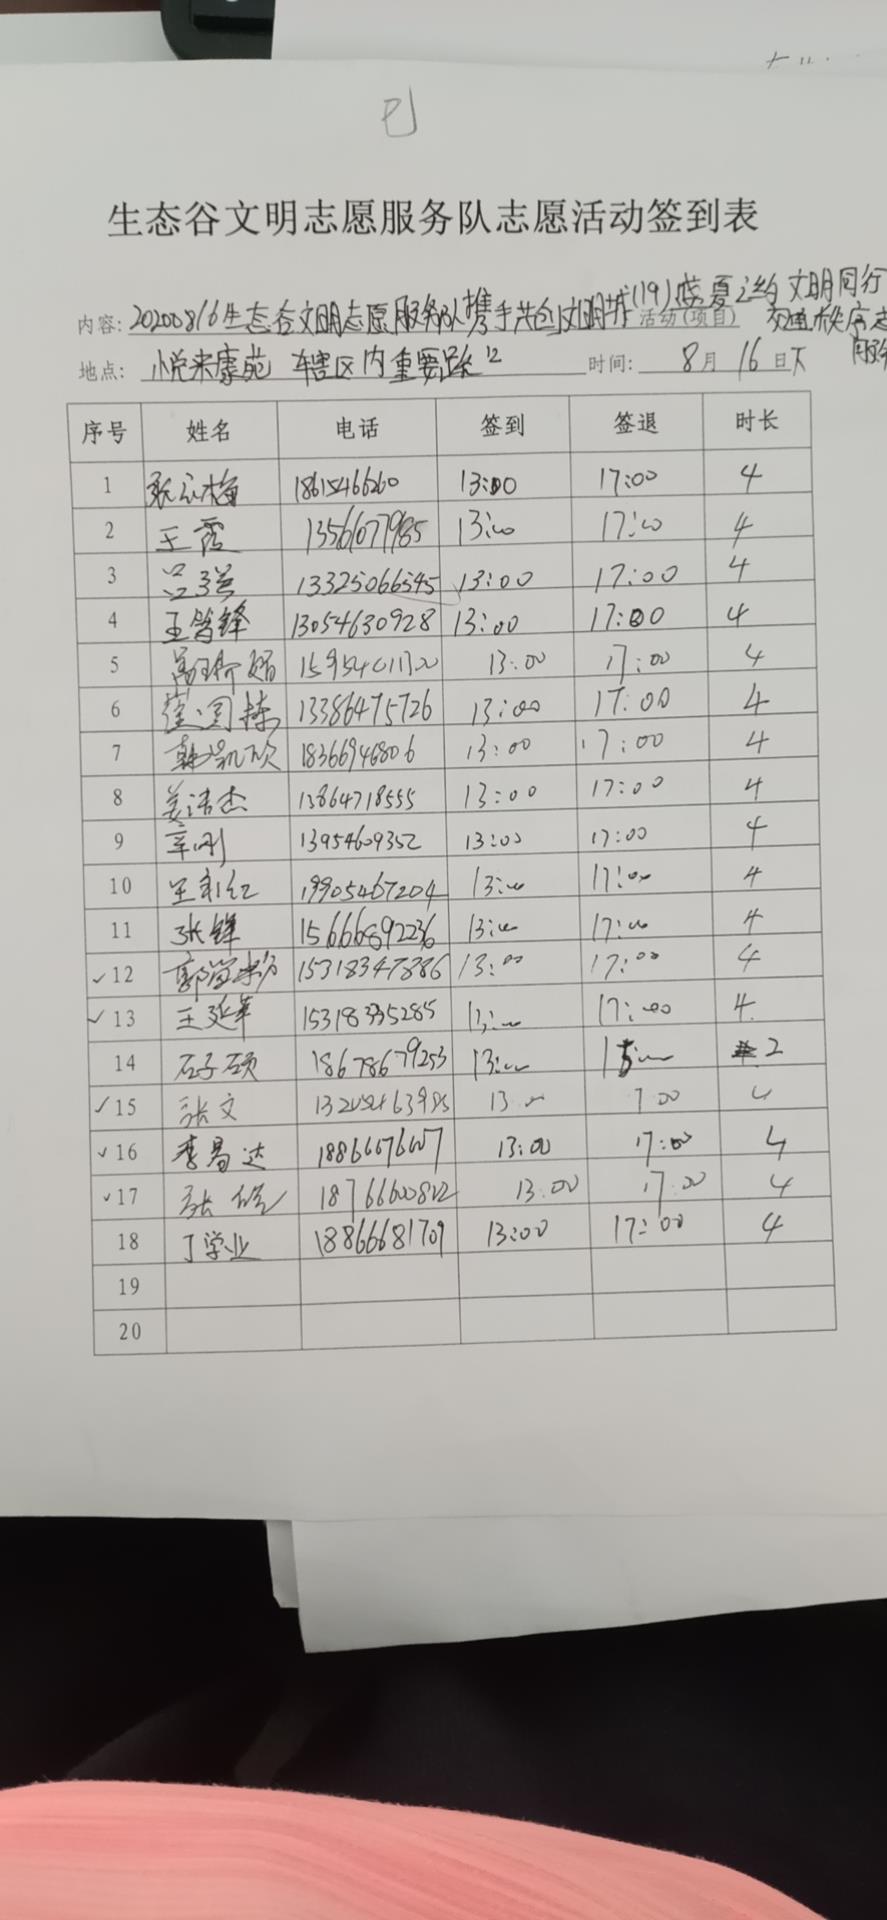 生态谷文明志愿服务队志愿活动签到表
内容: 20200816生态谷文明志愿服务队携手共创文明城(19)盛夏之约 文明同行 活动(项目) 交通秩序志
地点: 悦来康苑 辖区内重要路口 时间: 8月16日下 服务
序号 姓名 电话 签到 签退 时长
1 张云梅 18615466260 13:00 17:00 4
2 王霞 13561677985 13:00 17:00 4
3 13325066545 13:00 17:00 4
4 13054630928 13:00 17:00 4
5 15954601700 13:00 17:00 4
6 13386475726 13:00 17:00 4
7 韩凯欣 18366946806 13:00 17:00 4
8 姜洁杰 13864718555 13:00 17:00 4
9 辛刚 13954609352 13:00 17:00 4
10 19905467204 13:00 17:00 4
11 张锋 15666892236 13:00 17:00 4
✓12 15318347886 13:00 17:00 4
✓13 王延华 15318335285 13:00 17:00 4
14 石子硕 18678679253 13:00 15:00 2
✓15 张文 13:00 17:00 4
✓16 李易达 18866676607 13:00 17:00 4
✓17 张 18766600802 13:00 17:00 4
18 丁学业 18866681709 13:00 17:00 4
19
20